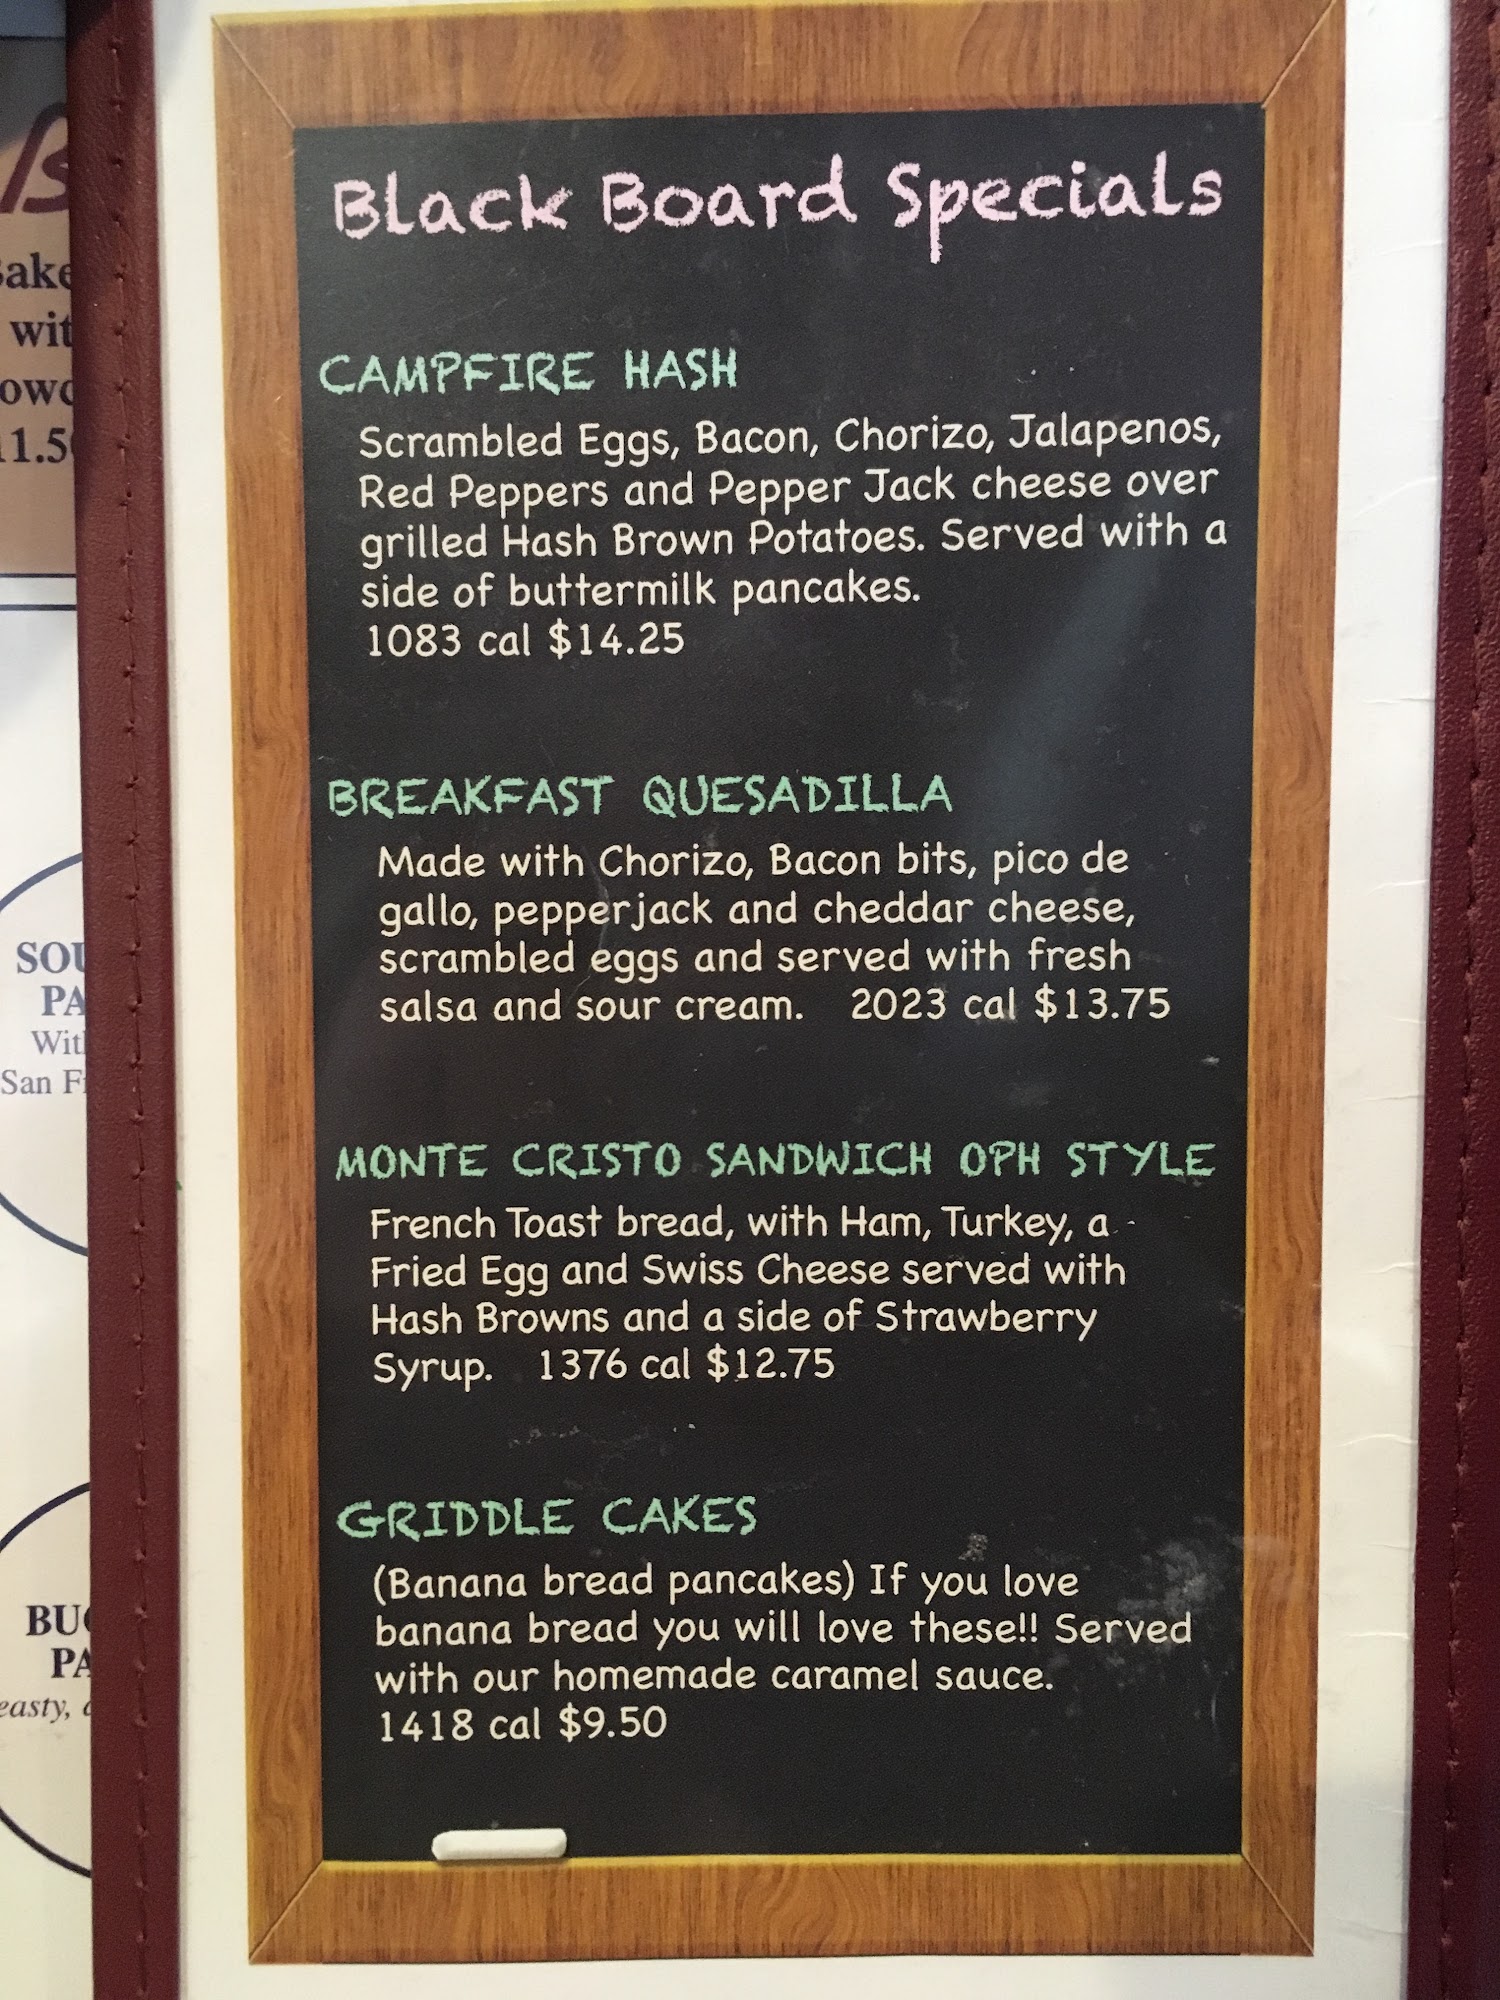 Black Board Specials
CAMPFIRE HASH
Scrambled Eggs, Bacon, Chorizo, Jalapenos,
Red Peppers and Pepper Jack cheese over
grilled Hash Brown Potatoes. Served with a
side of buttermilk pancakes.
1083 cal $14.25
BREAKFAST QUESADILLA
Made with Chorizo, Bacon bits, pico de
gallo, pepperjack and cheddar cheese,
scrambled eggs and served with fresh
salsa and sour cream. 2023 cal $13.75
MONTE CRISTO SANDWICH OPH STYLE
French Toast bread, with Ham, Turkey, a
Fried Egg and Swiss Cheese served with
Hash Browns and a side of Strawberry
Syrup. 1376 cal $12.75
GRIDDLE CAKES
(Banana bread pancakes) If you love
banana bread you will love these!! Served
with our homemade caramel sauce.
1418 cal $9.50